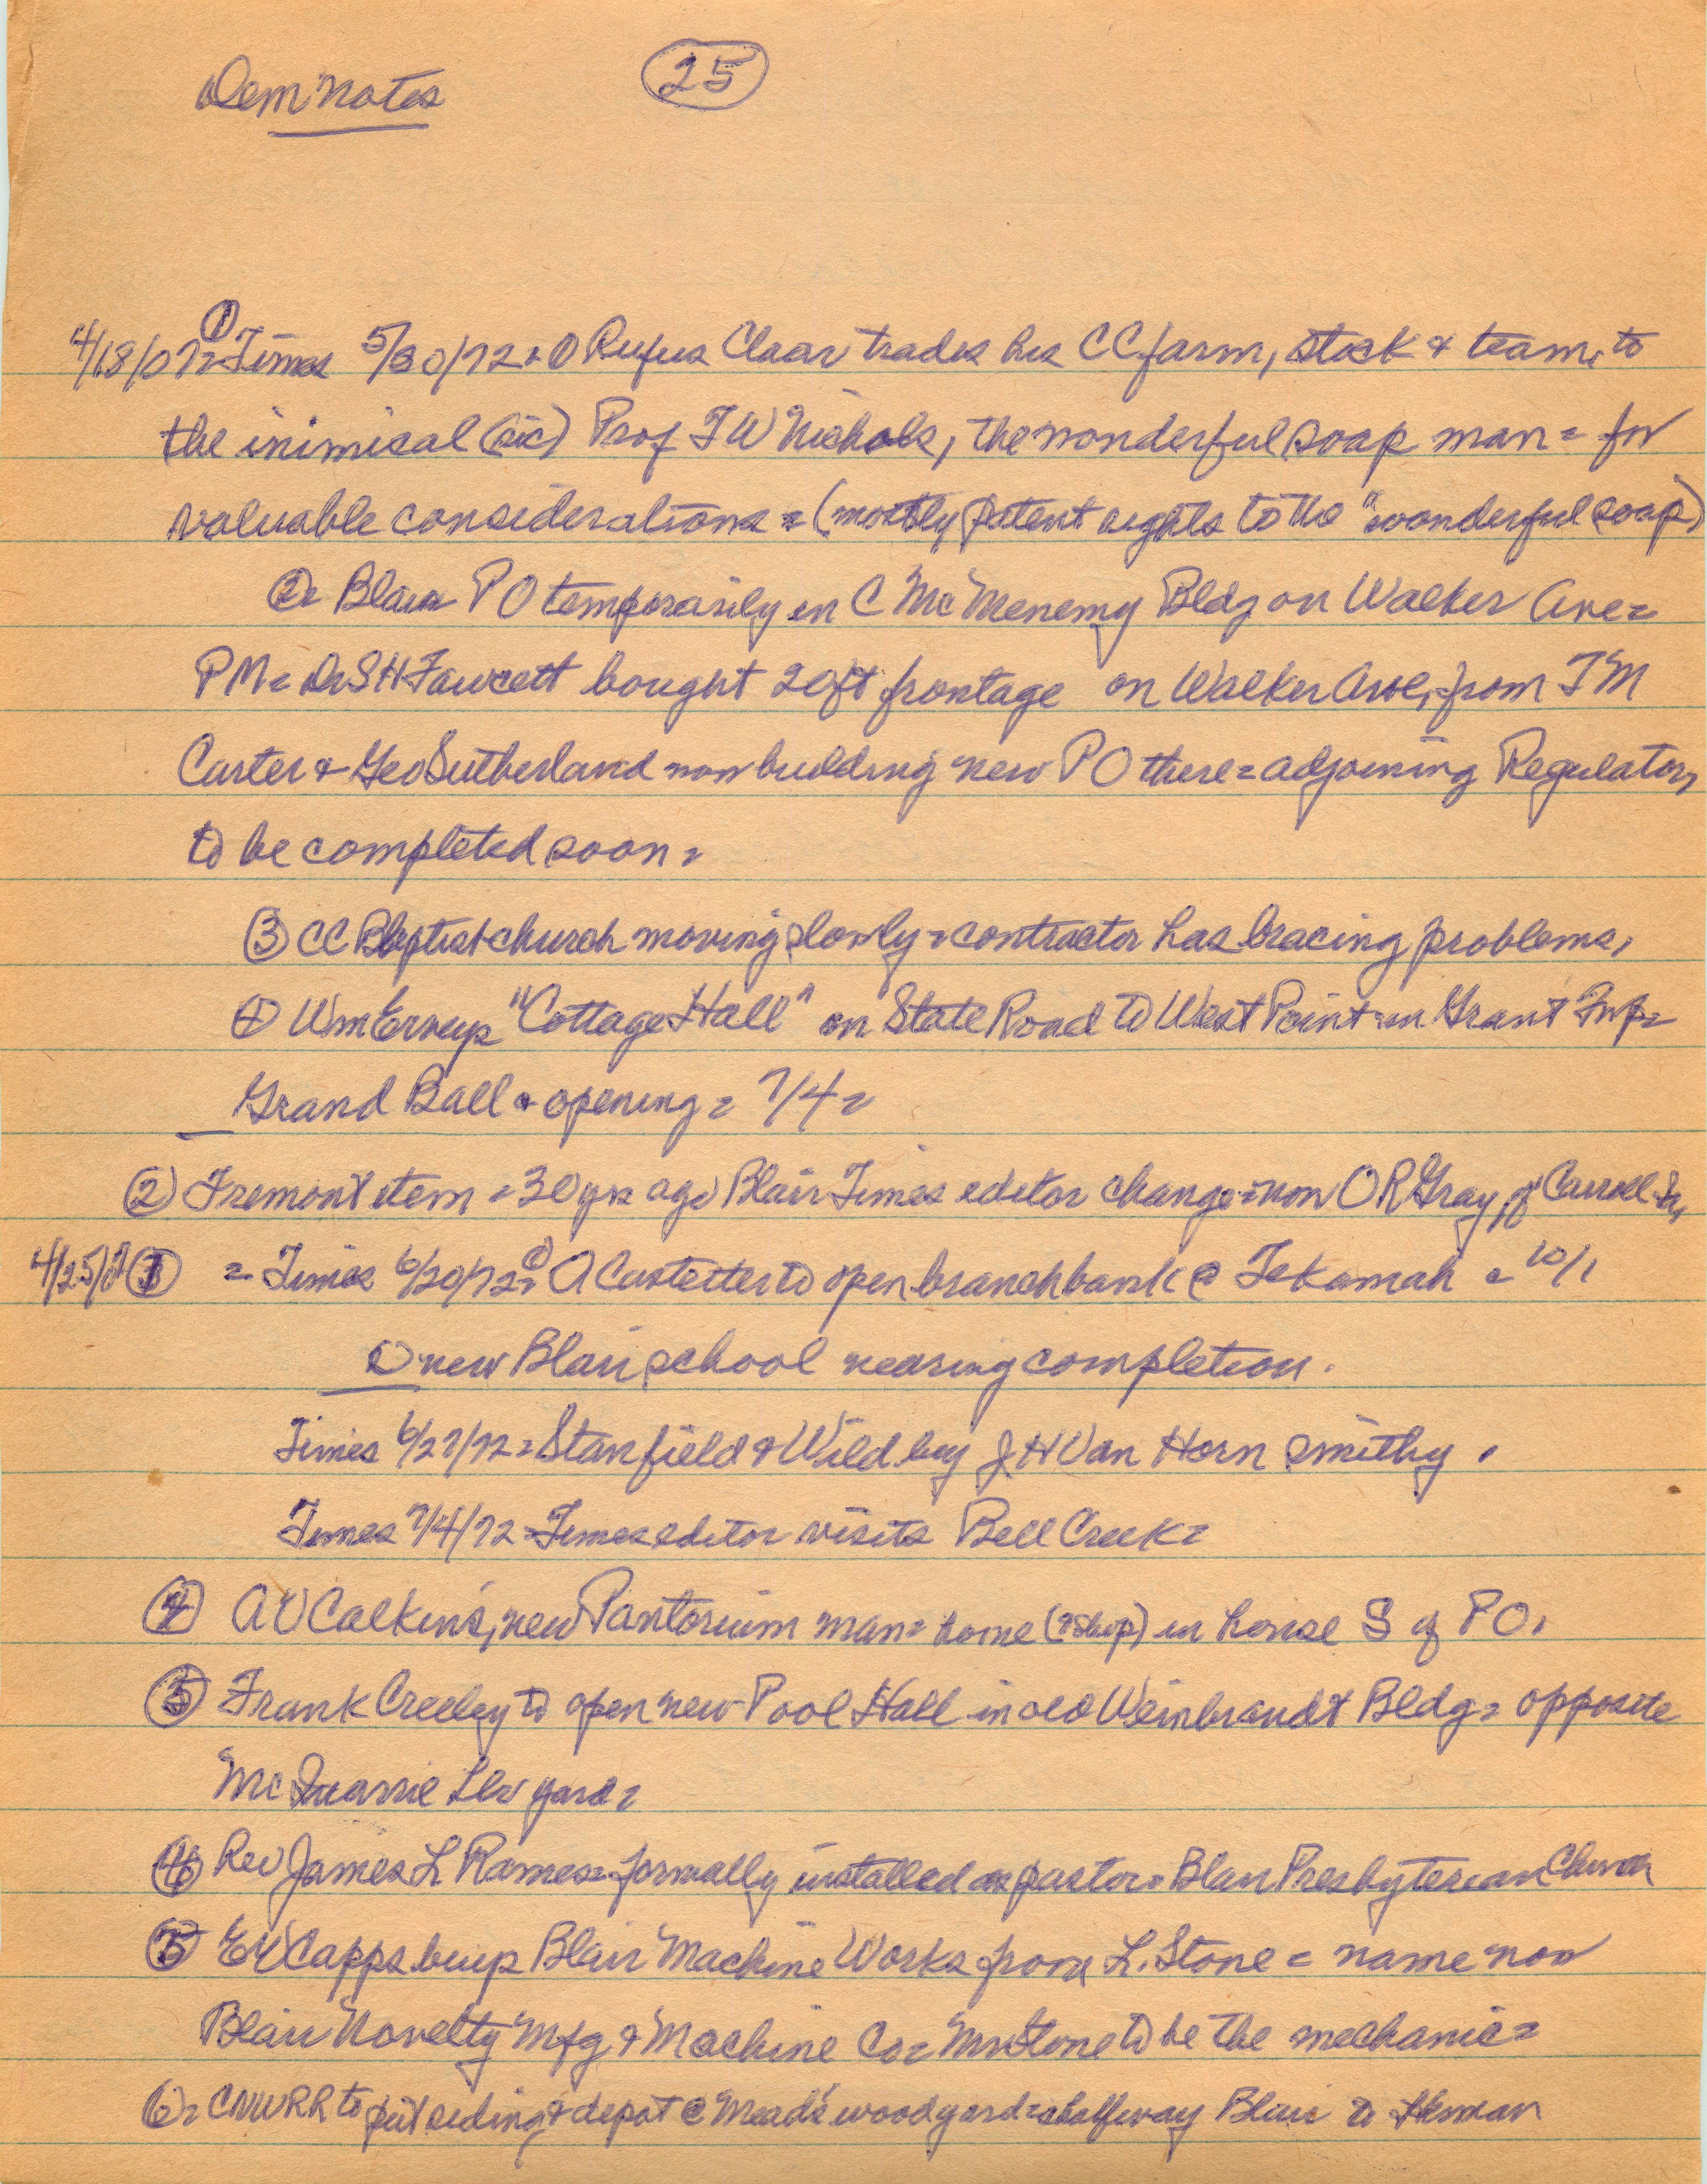 Dem notes
25
4/18/07 = ① Times 5/30/72 = ① Rufus Claar trades his CC farm, stock & team, to
the inimical (sic) Prof T W Nichols, the wonderful soap man = for
valuable considerations = (mostly patent rights to the "wonderful soap)
②= Blair PO temporarily in C McMenemy Bldg on Walker Ave =
PM = Dr S H Fawcett bought 20ft frontage on Walker Ave, from T M
Carter & Geo Sutherland now building new PO there = adjoining Regulator,
to be completed soon =
③ CC Baptist church moving slowly = contractor has bracing problems,
④ Wm "Cottage Hall" on State Road to West Point = in Grant Twp =
Grand Ball & opening = 7/4 =
② Fremont item = 30 yrs ago Blair Times editor change = now O R Gray, of Carroll Ia,
4/25/07 ① = Times 6/20/72 = ① A Castetter to open branch bank @ Tekamah = 10/1
② new Blair school nearing completion.
Times 6/27/72 = Stanfield & Wild buy J H Van Horn smithy.
Times 7/4/72 = Times editor visits Bell Creek =
② A V Calkins, new Pantorium man = home (& shop) in house S of PO.
③ Frank Creeley to open new Pool Hall in old Weinbrandt Bldg = opposite
McQuarrie Lbr yard =
④ Rev James L Rames = formally installed as pastor = Blair Presbyterian Church
⑤ E V Capps buys Blair Machine Works from L. Stone = name now
Blair Novelty Mfg & Machine Co = Mr Stone to be the mechanic =
⑥= CNWRR to put siding & depot @ Mead's woodyard = halfway Blair to Herman